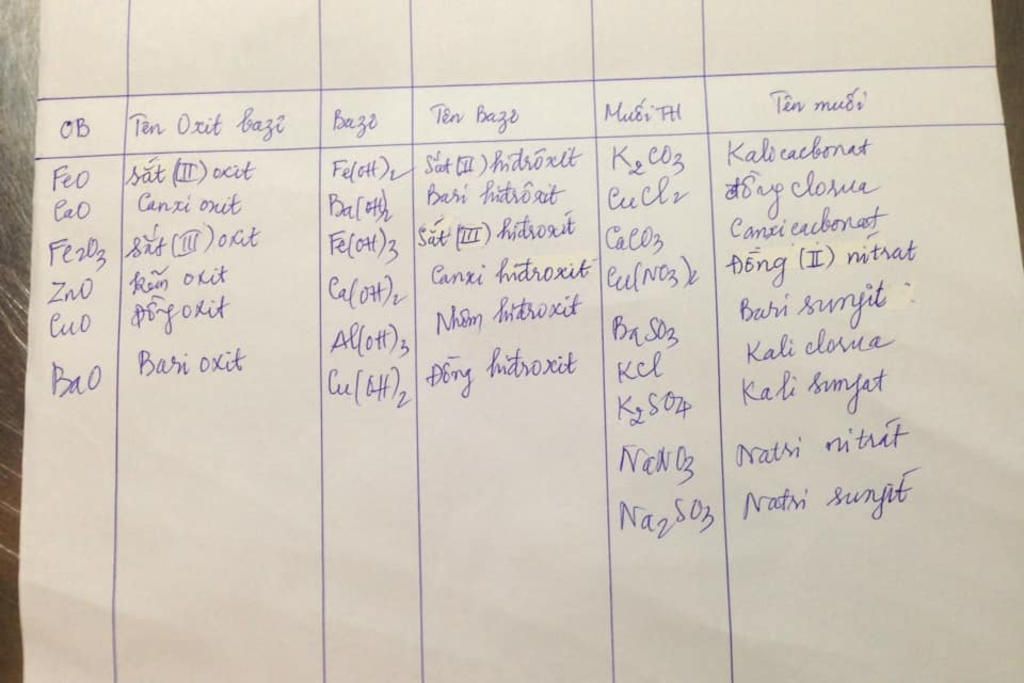 OB Tên Oxit bazơ Bazơ Tên Bazơ Muối TH Tên muối
FeO Sắt (II) oxit Fe(OH)2 Sắt (II) hiđrôxit K2CO3 Kali cacbonat
CaO Canxi oxit Ba(OH)2 Bari hiđrôxit CuCl2 Đồng clorua
Fe2O3 Sắt (III) oxit Fe(OH)3 Sắt (III) hiđroxit CaCO3 Canxi cacbonat
ZnO Kẽm oxit Ca(OH)2 Canxi hiđroxit Cu(NO3)2 Đồng (II) nitrat
CuO Đồng oxit Al(OH)3 Nhôm hiđroxit BaSO3 Bari sunfit
BaO Bari oxit Cu(OH)2 Đồng hiđroxit KCl Kali clorua
K2SO4 Kali sunfat
NaNO3 Natri nitrát
Na2SO3 Natri sunfit